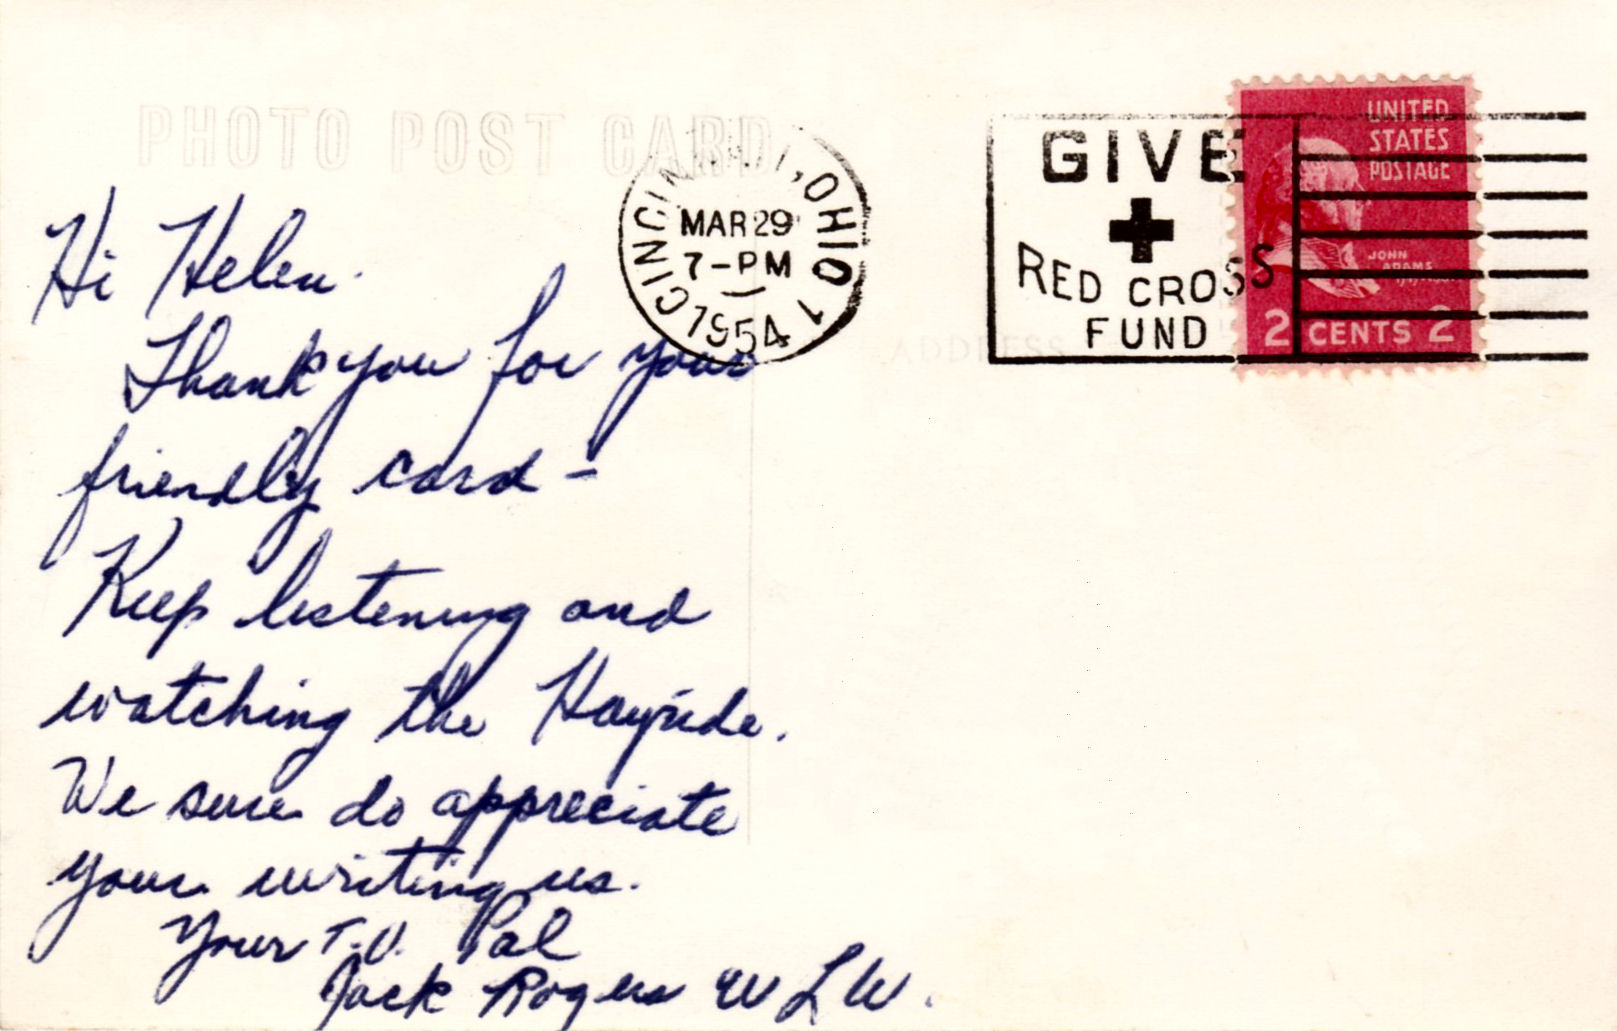 PHOTO POST CARD
CINCINNATI, OHIO 1
MAR 29
7-PM
1954
GIVE
RED CROSS
FUND
UNITED
STATES
POSTAGE
JOHN
ADAMS
2 CENTS 2
ADDRESS
Hi Helen.
Thank you for your
friendly card -
Keep listening and
watching the Hayride.
We sure do appreciate
your writing us.
Your T.V. Pal
Jack Rogers WLW.